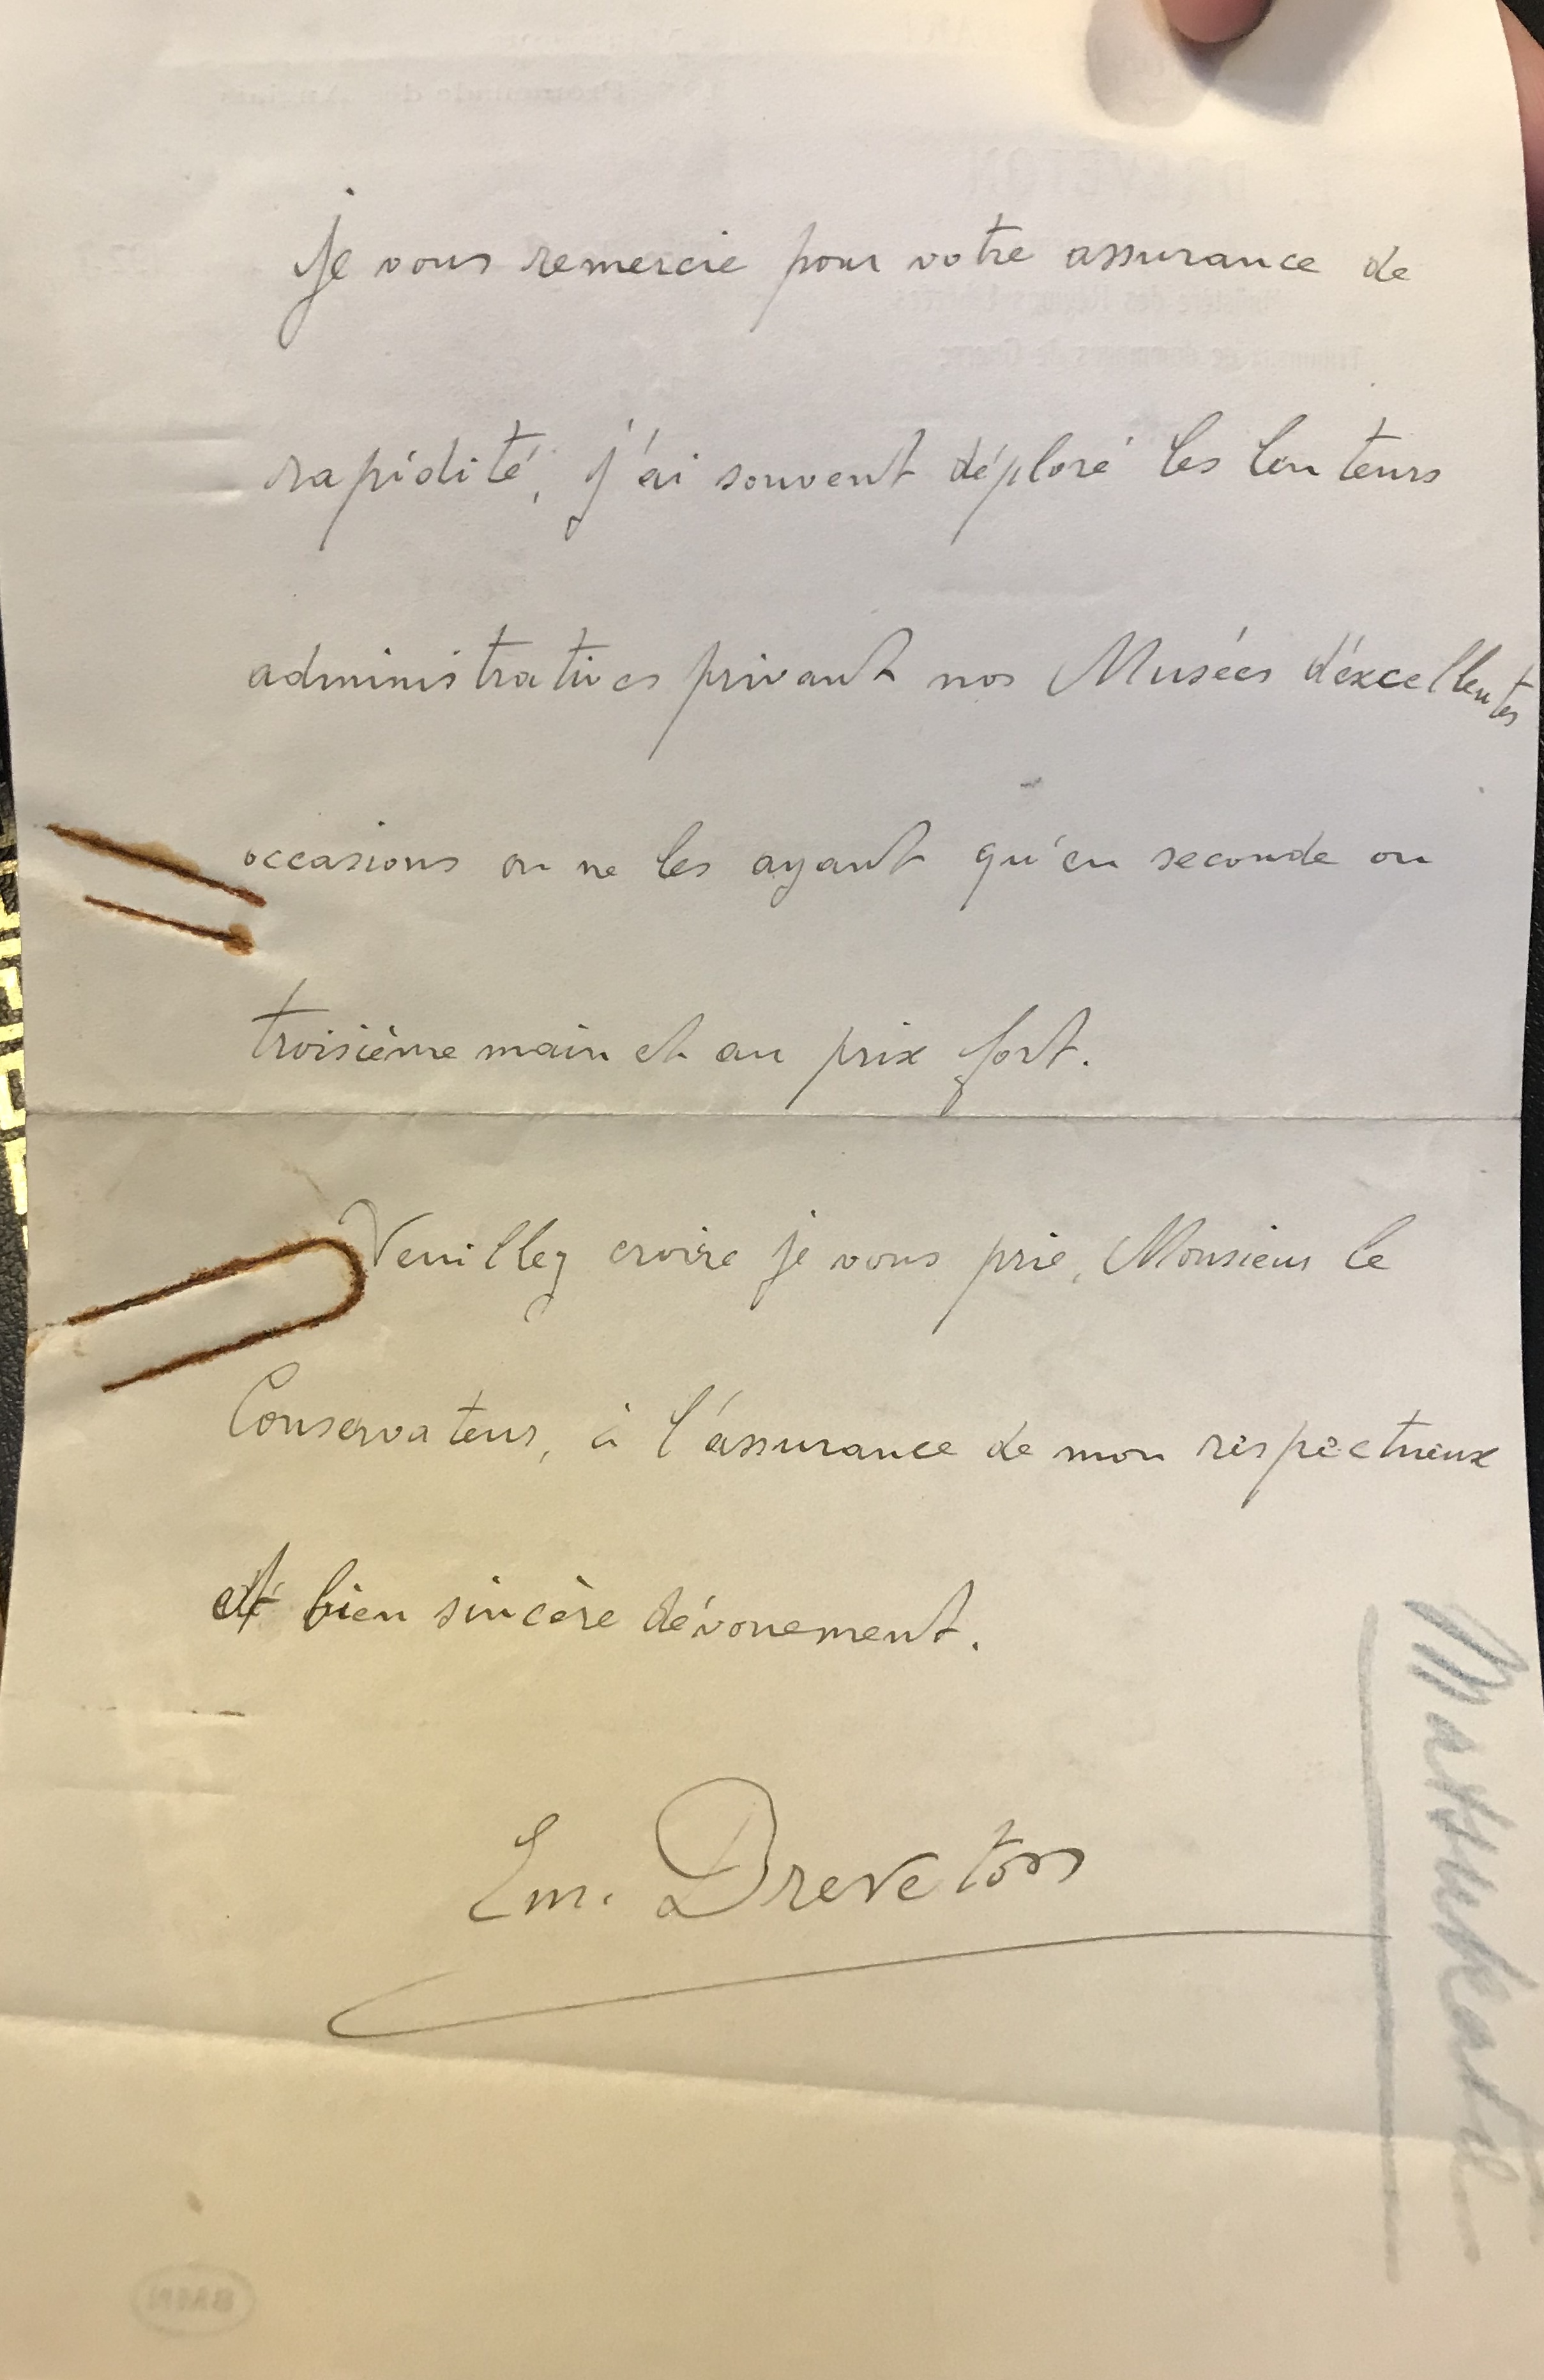 je vous remercie pour votre assurance de
rapidité, j'ai souvent déploré les lenteurs
administratives privant nos Musées d'excellentes
occasions ou ne les ayant qu'en seconde ou
troisième main et au prix fort.
Veuillez croire je vous prie, Monsieur le
Conservateur, à l'assurance de mon respectueux
et bien sincère dévouement.
Em. Dreveton